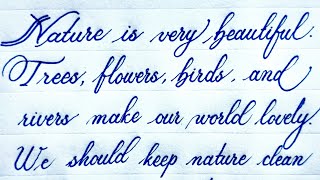 Nature is very beautiful.
Trees, flowers, birds, and
rivers make our world lovely.
We should keep nature clean